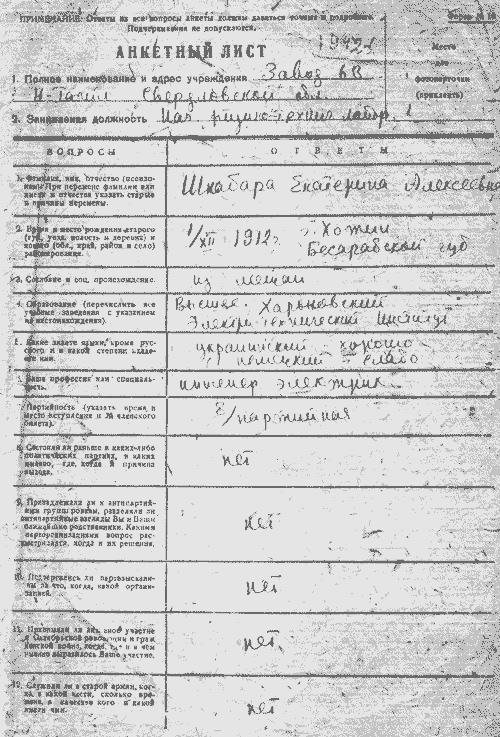 ПРИМЕЧАНИЕ: Ответы на все вопросы анкеты должны даваться точные и подробные.
Подчеркивания не допускаются.
Форма №
АНКЕТНЫЙ ЛИСТ
1942 г.
Место
для
фотокарточки
(приклеить)
1. Полное наименование и адрес учреждения Завод 63
Н-Тагил Свердловской обл.
2. Занимаемая должность Нач. физико-технич лабор.
ВОПРОСЫ
ОТВЕТЫ
1. Фамилия, имя, отчество (псевдо-
ним). При перемене фамилии или
имени и отчества указать старые
и причины перемены.
Шкабара Екатерина Алексеевна
2. Время и место рождения старого
(губ., уезд, волость и деревня) и
нового (обл., край, район и село)
районирования.
1/XII 1912г. г. Хотин
Бесарабской губ
3. Сословие и соц. происхождение.
из мещан
4. Образование (перечислить все
учебные заведения с указанием
их местонахождения).
Высшее. Харьковский
Электро-технический Институт
5. Какие знаете языки, кроме рус-
ского и в какой степени владе-
ете ими.
украинский - хорошо
немецкий - слабо
6. Ваша профессия или специаль-
ность.
инженер электрик
7. Партийность (указать время и
место вступления и № членского
билета).
б/партийная
8. Состояли ли раньше в каких-либо
политических партиях, в каких
именно, где, когда и причина
выхода.
нет
9. Принадлежали ли к антипартий-
ным группировкам, разделяли ли
антипартийные взгляды Вы и Ваши
ближайшие родственники. Какими
парторганизациями вопрос рас-
сматривался, когда и их решения.
нет
10. Подвергались ли партвзыскани-
ям за что, когда, какой органи-
зацией.
нет
11. Принимали ли активное участие
в Октябрьской революции и граж-
данской войне, когда, где и в чем
именно выразилось Ваше участие.
нет
12. Служили ли в старой армии, ког-
да, в какой части, сколько вре-
мени, в качестве кого и какой
имели чин.
нет